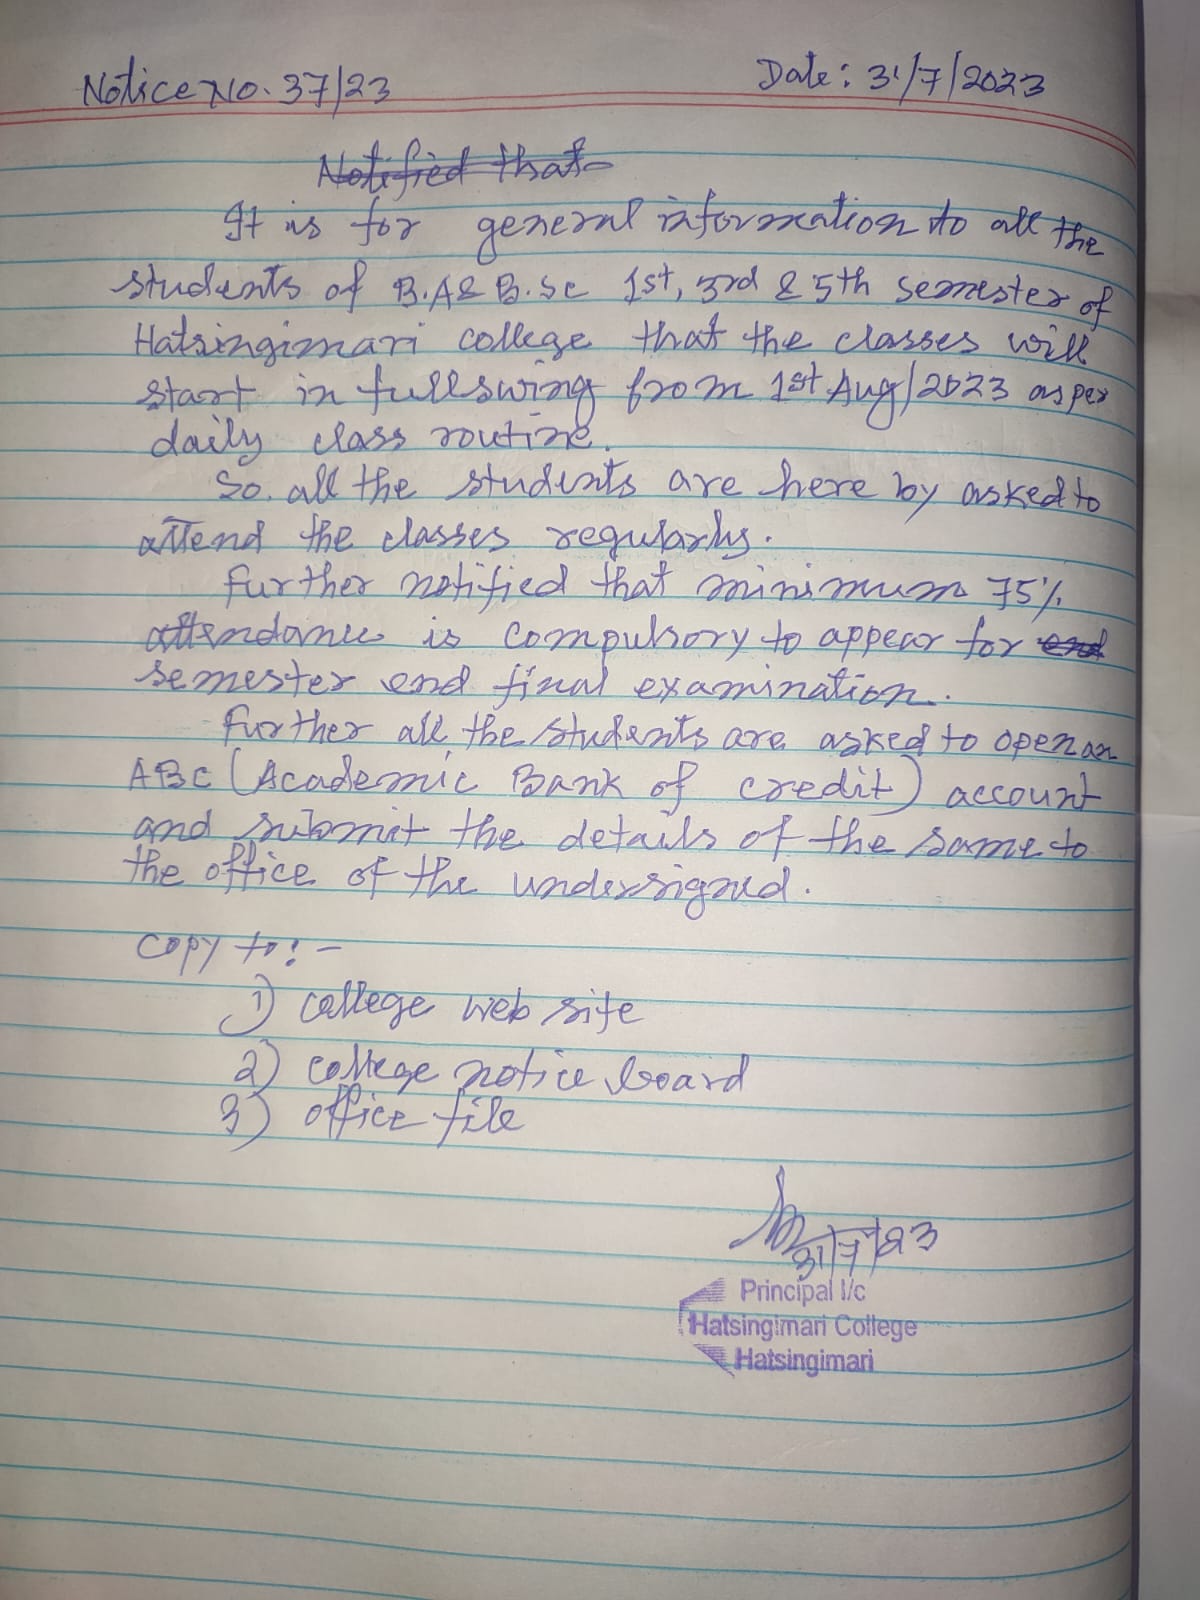 Notice No. 37/23 Date: 31/7/2023
Notified that
It is for general information to all the
students of B.A & B.Sc 1st, 3rd & 5th semester of
Hatsingimari college that the classes will
start in full swing from 1st Aug/2023 as per
daily class routine.
So. all the students are here by asked to
attend the classes regularly.
Further notified that minimum 75%
attendance is compulsory to appear for end
semester end final examination.
Further all the students are asked to open an
ABC (Academic Bank of credit) account
and submit the details of the same to
the office of the undersigned.
Copy to:-
1) college web site
2) college notice board
3) office file
31/7/23
Principal I/c
Hatsingimari College
Hatsingimari